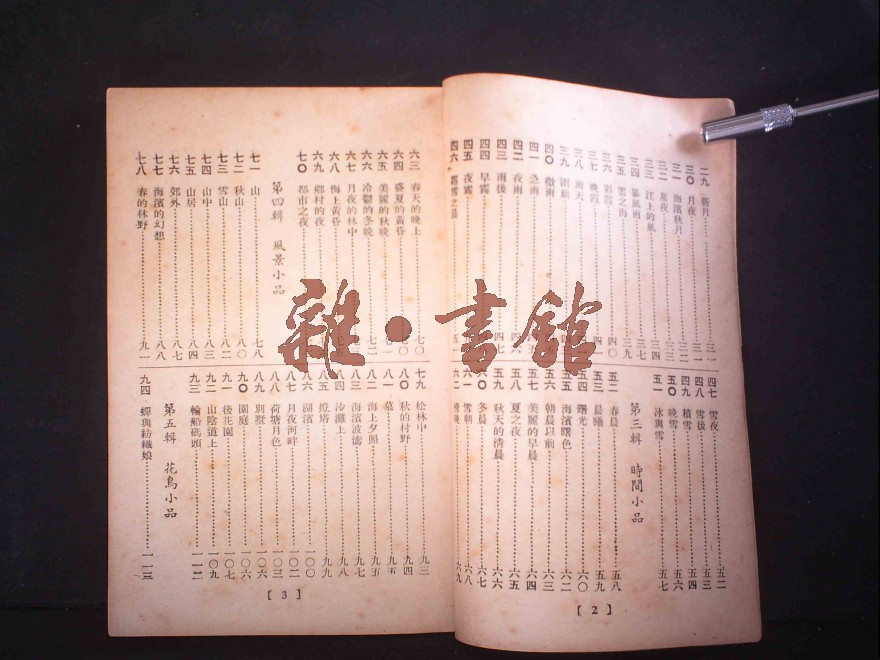 二九 新月……三一
三〇 月夜……三二
三一 海濱秋月……三三
三二 星夜……三四
三三 江上的風……三七
三四 暴風雨……三九
三五 雲之海……四〇
三六 彩霞
三七 晚霞
三八 雨天
三九 雨前
四〇 微雨
四一 急雨
四二 夜雨
四三 雨後
四四 早霧
四五 夜霧
四六 霧雪之晨……五一
四七 雪夜……五二
四八 雪後……五三
四九 積雪……五四
五〇 晚雪……五六
五一 冰與雪……五七
第三輯 時間小品
五二 春晨……五八
五三 晨曦……五九
五四 曙光……六〇
五五 海濱曙色……六二
五六 朝晨以前……六三
五七 美麗的早晨……六四
五八 夏之夜……六五
五九 秋天的清晨……六六
六〇 冬晨……六七
六一 雪朝……六八
六二 傍晚……六九
[2]
六三 春天的晚上……七〇
六四 盛夏的黃昏
六五 美麗的秋晚
六六 冷鬱的冬晚……七二
六七 月夜的林中
六八 海上黃昏
六九 鄉村的夜
七〇 都市之夜
第四輯 風景小品
七一 山……七八
七二 秋山……八〇
七三 雪山……八二
七四 山中……八三
七五 山居……八四
七六 郊外……八七
七七 海濱的幻想……八八
七八 春的林野……九一
七九 松林中……九三
八〇 秋的村野……九四
八一 墓……九五
八二 海上夕照……九五
八三 海濱波濤……九七
八四 沙灘上……九八
八五 燈塔……九九
八六 湖濱……一〇〇
八七 月夜河畔……一〇二
八八 荷塘月色……一〇三
八九 別墅……一〇六
九〇 園庭……一〇六
九一 後花園……一〇七
九二 山陰道上……一〇九
九三 輪船碼頭……一一二
第五輯 花鳥小品
九四 蟬與紡織娘……一一三
[3]
雜·書館